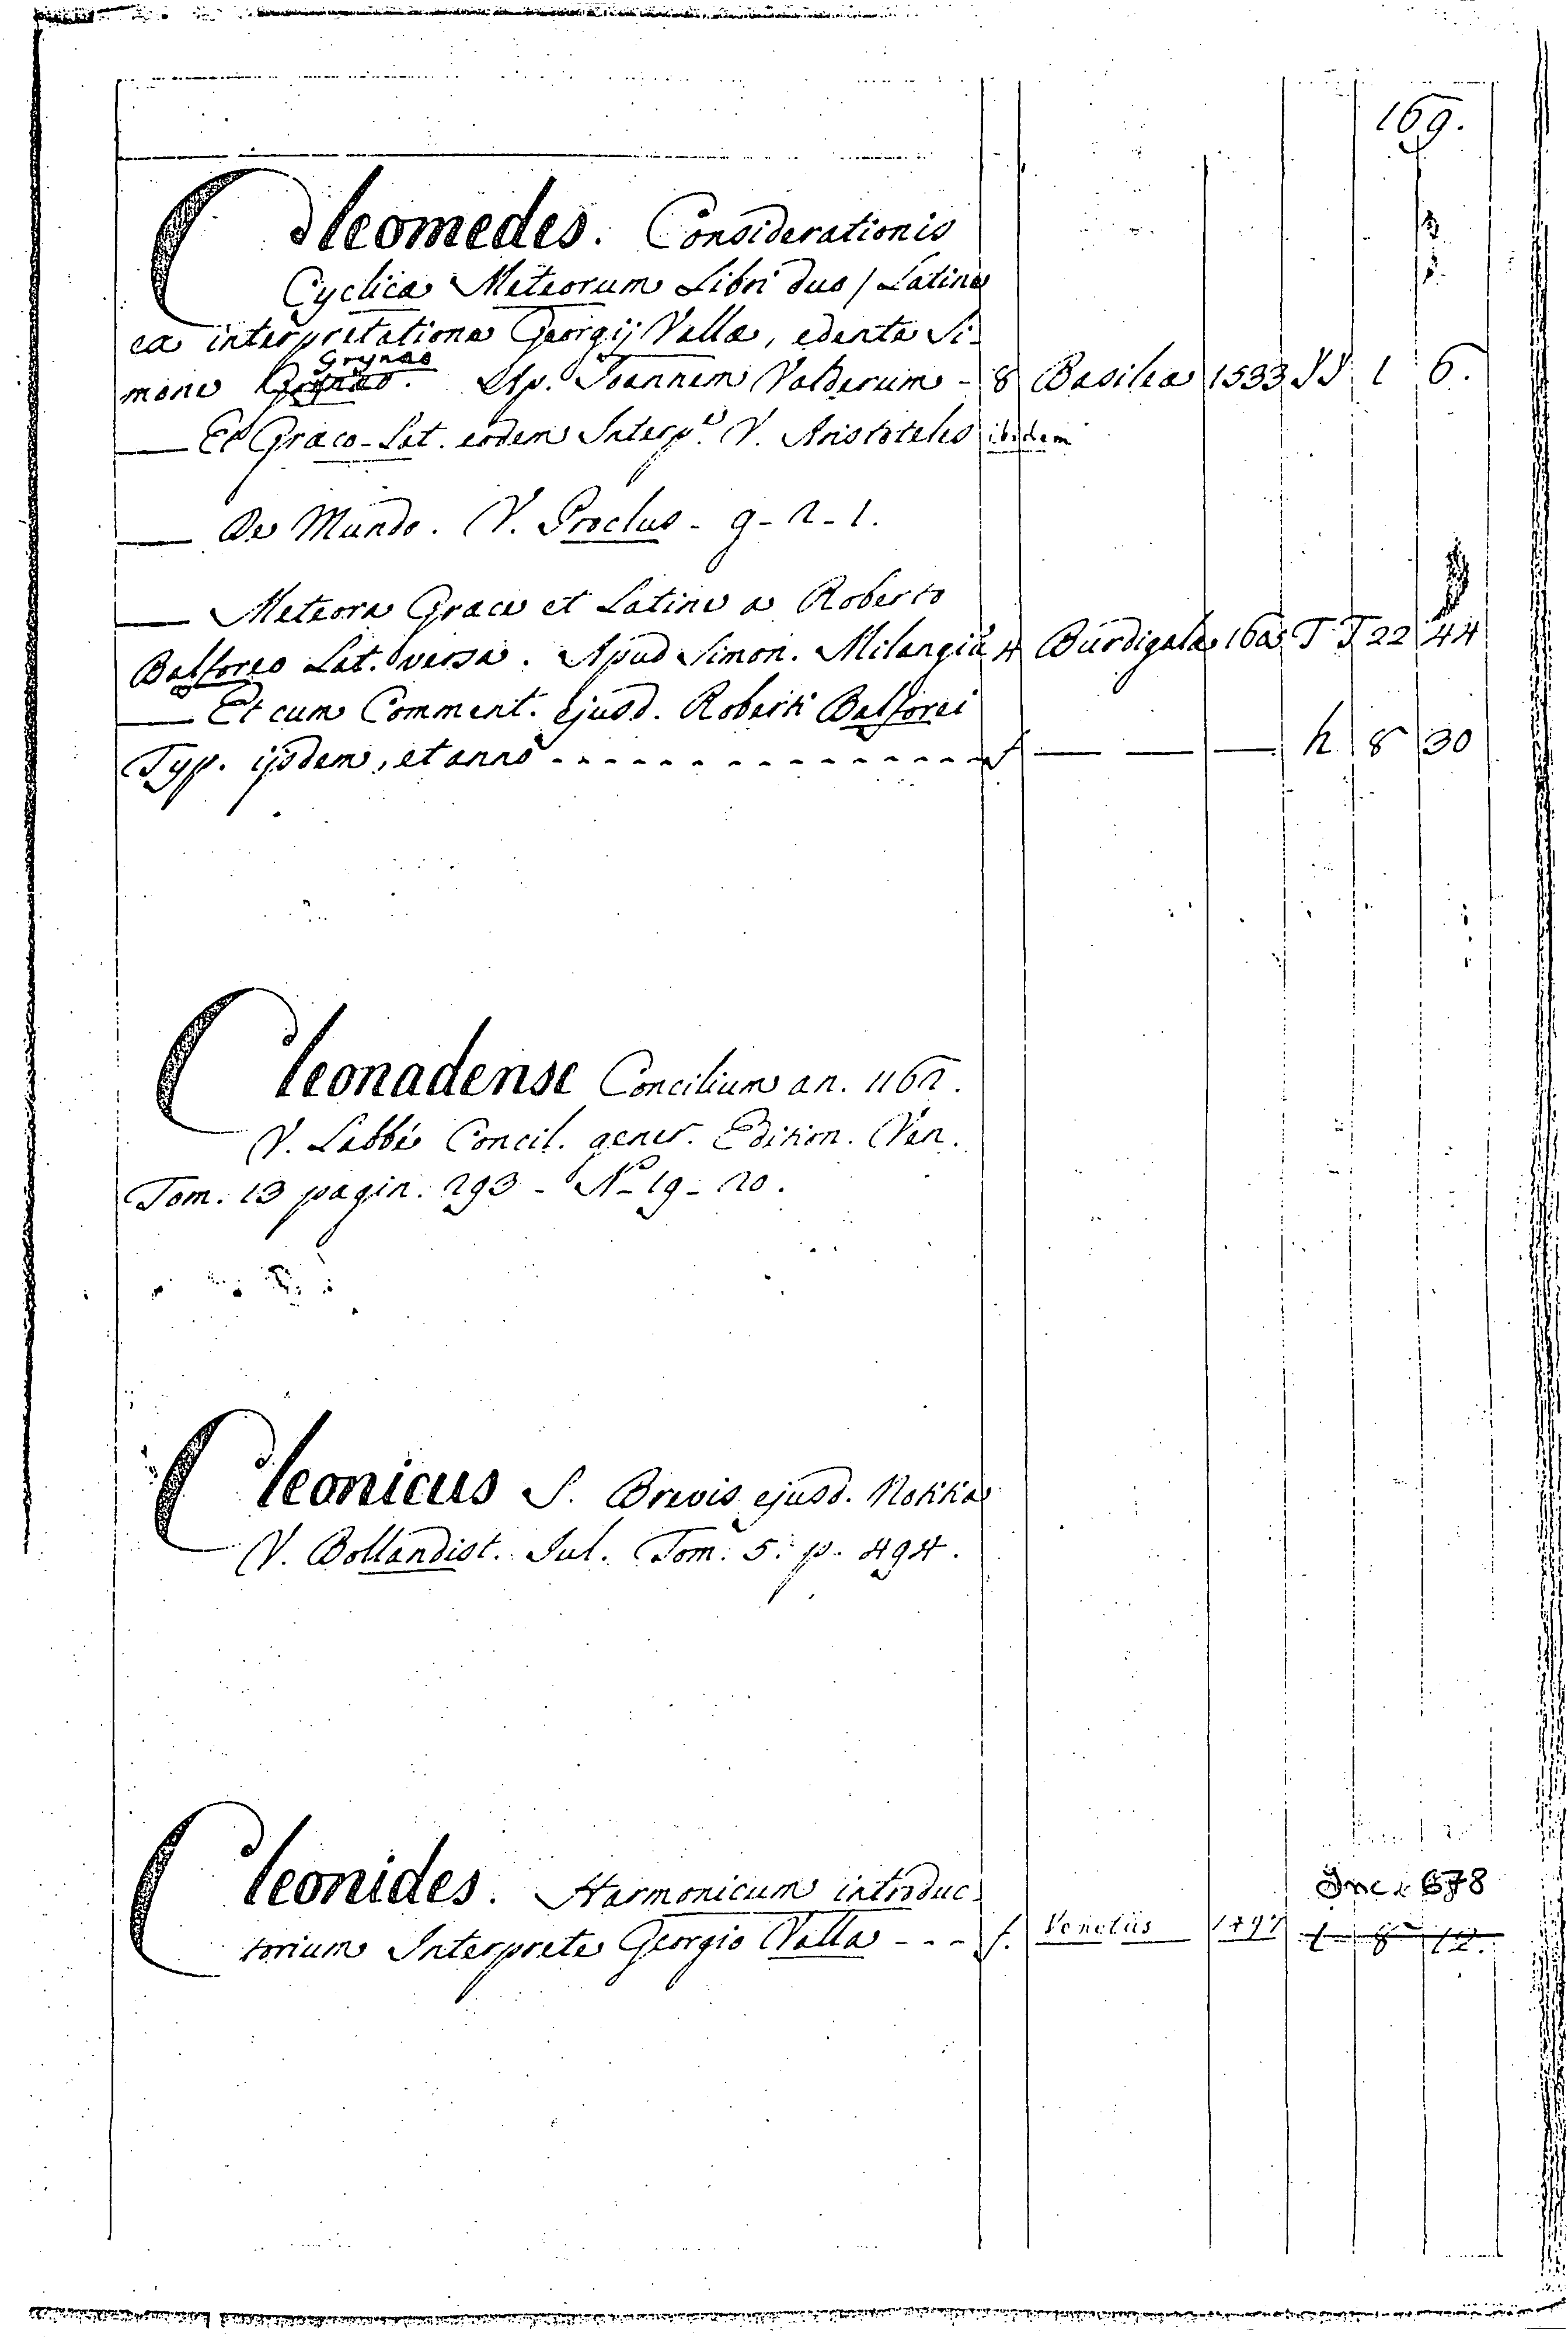 169.
Cleomedes. Considerationis
Cyclica Meteorum Libri duo / Latine
ex interpretatione Georgij Valla, edente Si-
Grynæo
mone Grynæo. Ap. Joannem Valderum - 8 Basilea 1533 1 6.
— Et Græco-Lat. eodem Interp.e V. Aristotelis ibidem
— De Mundo. V. Proclus - 9-2-1.
— Meteora Græce et Latine a Roberto
Balforeo Lat. versa. Apud Simon. Milangiũ 4 Burdigalæ 1605 T T 22 44
— Et cum Comment. ejusd. Roberti Balforei
Typ. ijsdem, et anno - - - - - - - - - - - - - - - f — — — h 8 30
Cleonadense Concilium an. 1162.
V. Labbé Concil. gener. Edition. Ven.
Tom. 13 pagin. 293 - N-19-20.
Cleonicus S. Brevis ejusd. Notitia
V. Bollandist. Jul. Tom. 5. p. 494.
Inc. 678
Cleonides. Harmonicum introduc-
torium Interprete Georgio Valla - - - f. Venetiis 1497 l 8 12.